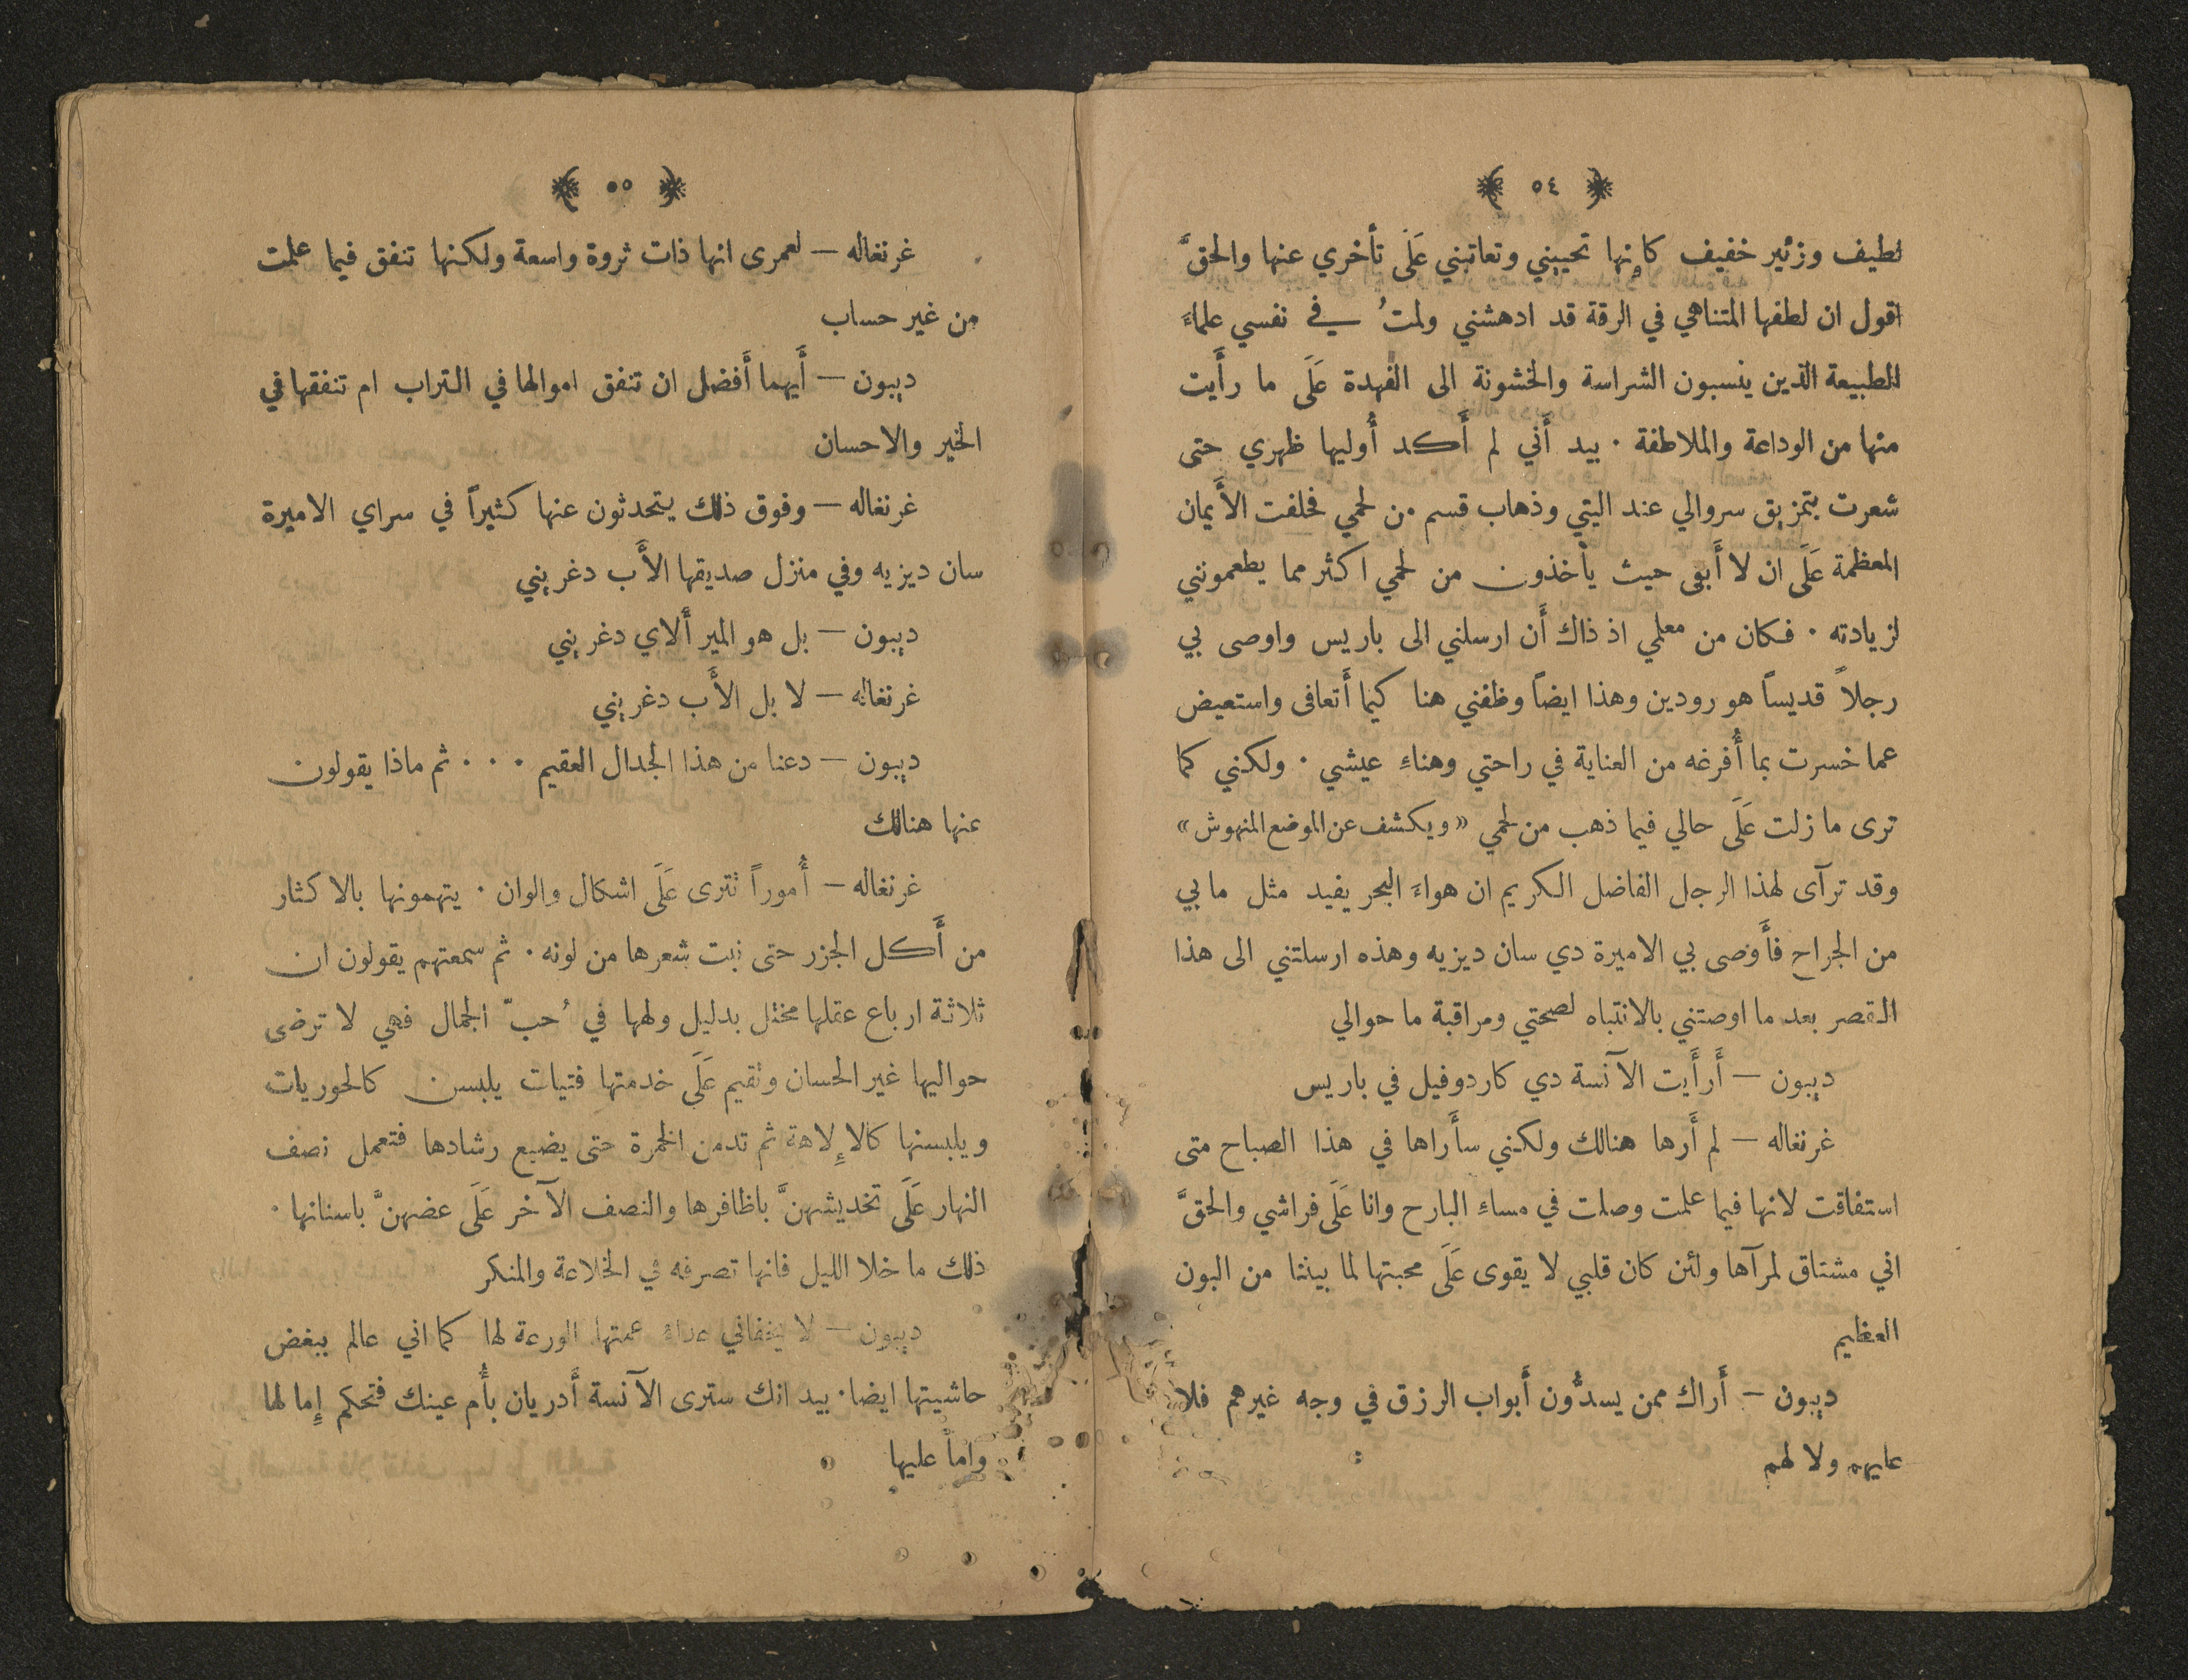 ٥٤
لطيف وزئير خفيف كإنها تحييني وتعاتبني عَلَى تأخري عنها والحقَّ
اقول ان لطفها المتناهي في الرقة قد ادهشني ولمتُ في نفسي علماءَ
الطبيعة الذين ينسبون الشراسة والخشونة الى الفهدة عَلَى ما رأَيت
منها من الوداعة والملاطفة ٠ بيد أَني لم أَكد أُوليها ظهري حتى
شعرت بتمزيق سروالي عند اليتي وذهاب قسم من لحمي فحلفت الأَيمان
المعظمة عَلَى ان لا أَبقى حيث يأخذون من لحمي اكثر مما يطعمونني
لزيادته ٠ فكان من معلمي اذ ذاك أَن ارسلني الى باريس واوصى بي
رجلاً قديساً هو رودين وهذا ايضاً وظفني هنا كيما أَتعافى واستعيض
عما خسرت بما أُفرغه من العناية في راحتي وهناءِ عيشي ٠ ولكني كما
ترى ما زلت عَلَى حالي فيما ذهب من لحمي «ويكشف عن الموضع المنهوش»
وقد ترآى لهذا الرجل الفاضل الكريم ان هواءَ البحر يفيد مثل ما بي
من الجراح فأَوصى بي الاميرة دي سان ديزيه وهذه ارسلتني الى هذا
القصر بعد ما اوصتني بالانتباه لصحتي ومراقبة ما حوالي
ديبون — أَرأَيت الآنسة دي كاردوفيل في باريس
غرنغاله — لم أَرها هنالك ولكني سأَراها في هذا الصباح متى
استفاقت لانها فيما علمت وصلت في مساءِ البارح وانا عَلَى فراشي والحقَّ
اني مشتاق لمرآها ولئن كان قلبي لا يقوى عَلَى محبتها لما بيننا من البون
العظيم
ديبون — أَراك ممن يسدُّون أَبواب الرزق في وجه غيرهم فلا
عليهم ولا لهم
٥٥
غرنغاله — لعمرى انها ذات ثروة واسعة ولكنها تنفق فيما علمت
من غير حساب
ديبون — أَيهما أَفضل ان تنفق اموالها في التراب ام تنفقها في
الخير والاحسان
غرنغاله — وفوق ذلك يتحدثون عنها كثيراً في سراي الاميرة
سان ديزيه وفي منزل صديقها الأَب دغريني
ديبون — بل هو المير أَلاي دغريني
غرنغاله — لا بل الأَب دغريني
ديبون — دعنا من هذا الجدال العقيم ٠ ٠ ٠ ثم ماذا يقولون
عنها هنالك
غرنغاله — أُموراً تترى عَلَى اشكال والوان ٠ يتهمونها بالاكثار
من أَكل الجزر حتى نبت شعرها من لونه ٠ ثم سمعتهم يقولون ان
ثلاثة ارباع عقلها مختل بدليل ولهها في حُبّ الجمال فهي لا ترضى
حواليها غير الحسان وتقيم عَلَى خدمتها فتيات يلبسن كالحوريات
ويلبسنها كالإِلاهة ثم تدمن الخمرة حتى يضيع رشادها فتعمل نصف
النهار عَلَى تخديشهنَّ باظافرها والنصف الآخر عَلَى عضهنَّ باسنانها ٠
ذلك ما خلا الليل فانها تصرفه في الخلاعة والمنكر
ديبون — لا يخفاني عمتها الورعة لها كما اني عالم ببغض
حاشيتها ايضا ٠ بيد انك سترى الآنسة أَدريان بأُم عينك فتحكم إِما لها
واما عليها